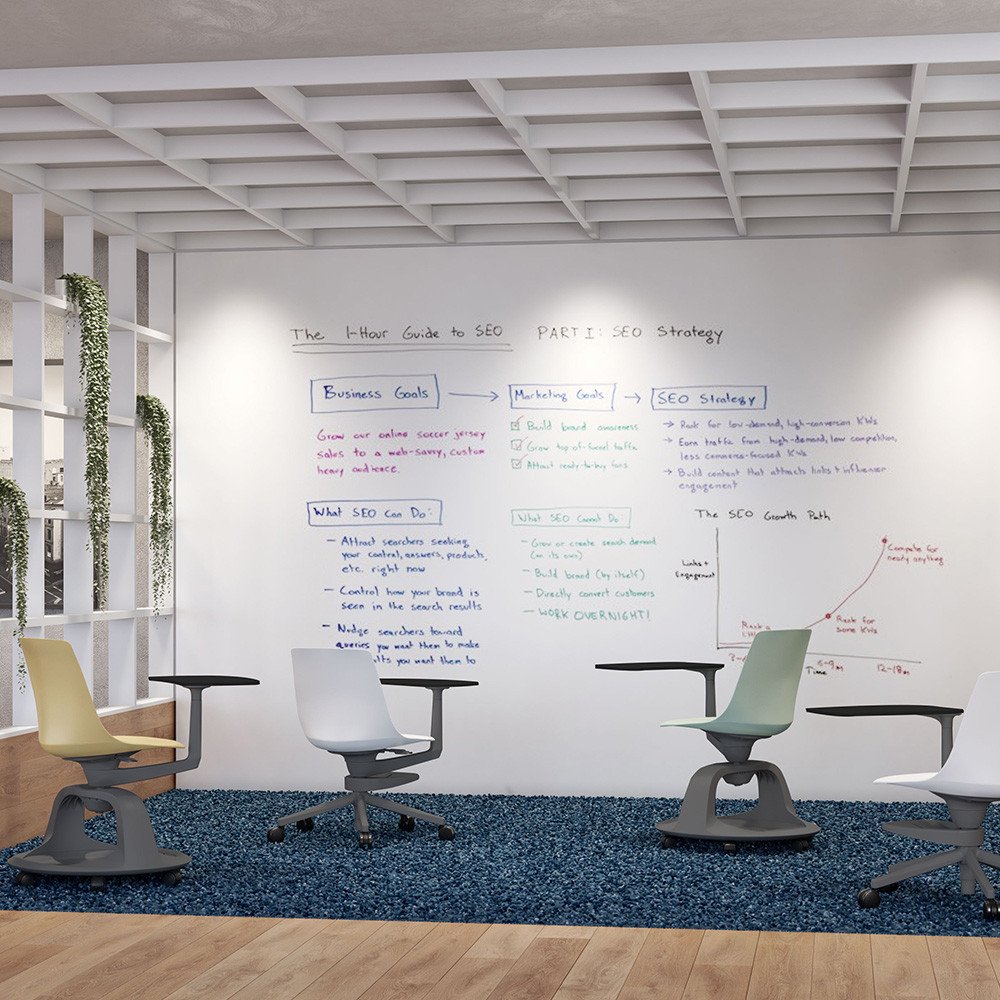 The 1-Hour Guide to SEO PART I: SEO Strategy
Business Goals
Marketing Goals
SEO Strategy
Grow our online soccer jersey
sales to a web-savvy, custom
heavy audience.
Build brand awareness
Grow top-of-funnel traffic
Attract ready-to-buy fans
Rank for low-demand, high-conversion KWs
Earn traffic from high-demand, low competition,
less commerce-focused KWs
Build content that attracts links + influencer
engagement
What SEO Can Do:
- Attract searchers seeking
your content, answers, product,
etc. right now
- Control how your brand is
seen in the search results
- Nudge searchers toward
queries you want them to make
you want them to
What SEO Cannot Do:
- Grow or create search demand
(on its own)
- Build brand (by itself)
- Directly convert customers
- WORK OVERNIGHT!
The SEO Growth Path
Links +
Engagement
Compete for
nearly anything
Rank for
some KWs
Rank
6-9m
12-18m
Time